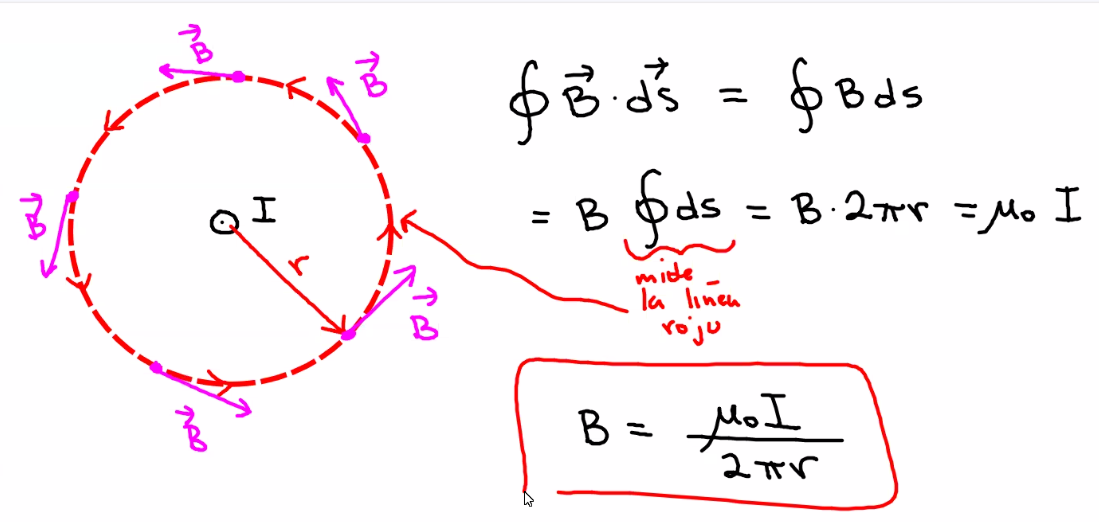 B⃗
B⃗
∮ B⃗ · ds⃗ = ∮ B ds
B⃗
I
= B ∮ ds = B · 2πr = μ₀ I
r
mide
la linea
roja
B⃗
B⃗
B = μ₀ I / 2πr